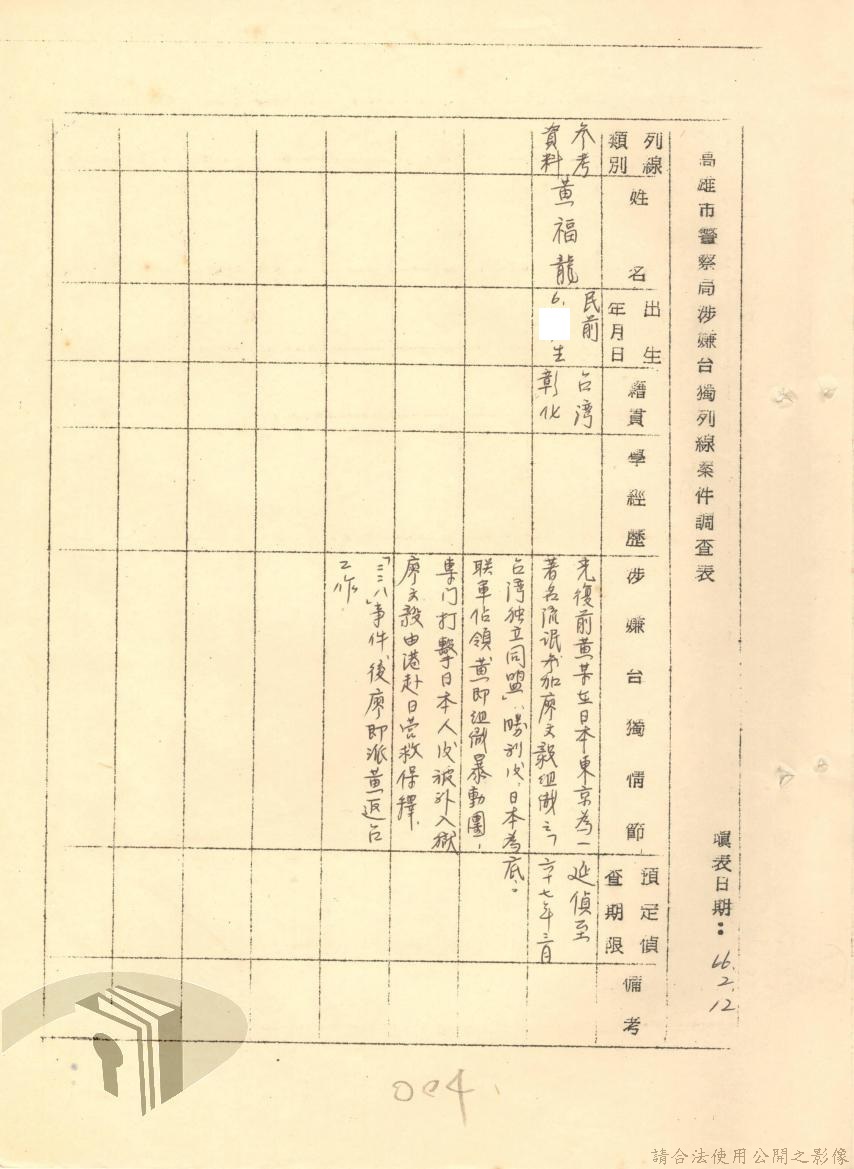 高雄市警察局涉嫌台獨列線案件調查表
填表日期：66.2.12
列線類別
姓名
出生年月日
籍貫
學經歷
涉嫌台獨情節
預定偵查期限
備考
參考資料
黃福龍
民前6.
生
台湾彰化
光復前黃某在日本東京為一
著名流氓参加廖文毅組織之「
台湾独立同盟」，勝利后，日本為
联軍佔領，黃即組織暴動團，
專门打擊日本人后被
入獄
廖文毅由港赴日营救保釋．
「二二八」事件後廖即派黃返台
工作．
延偵至
六十七年三月
底．
004
請合法使用公開之影像